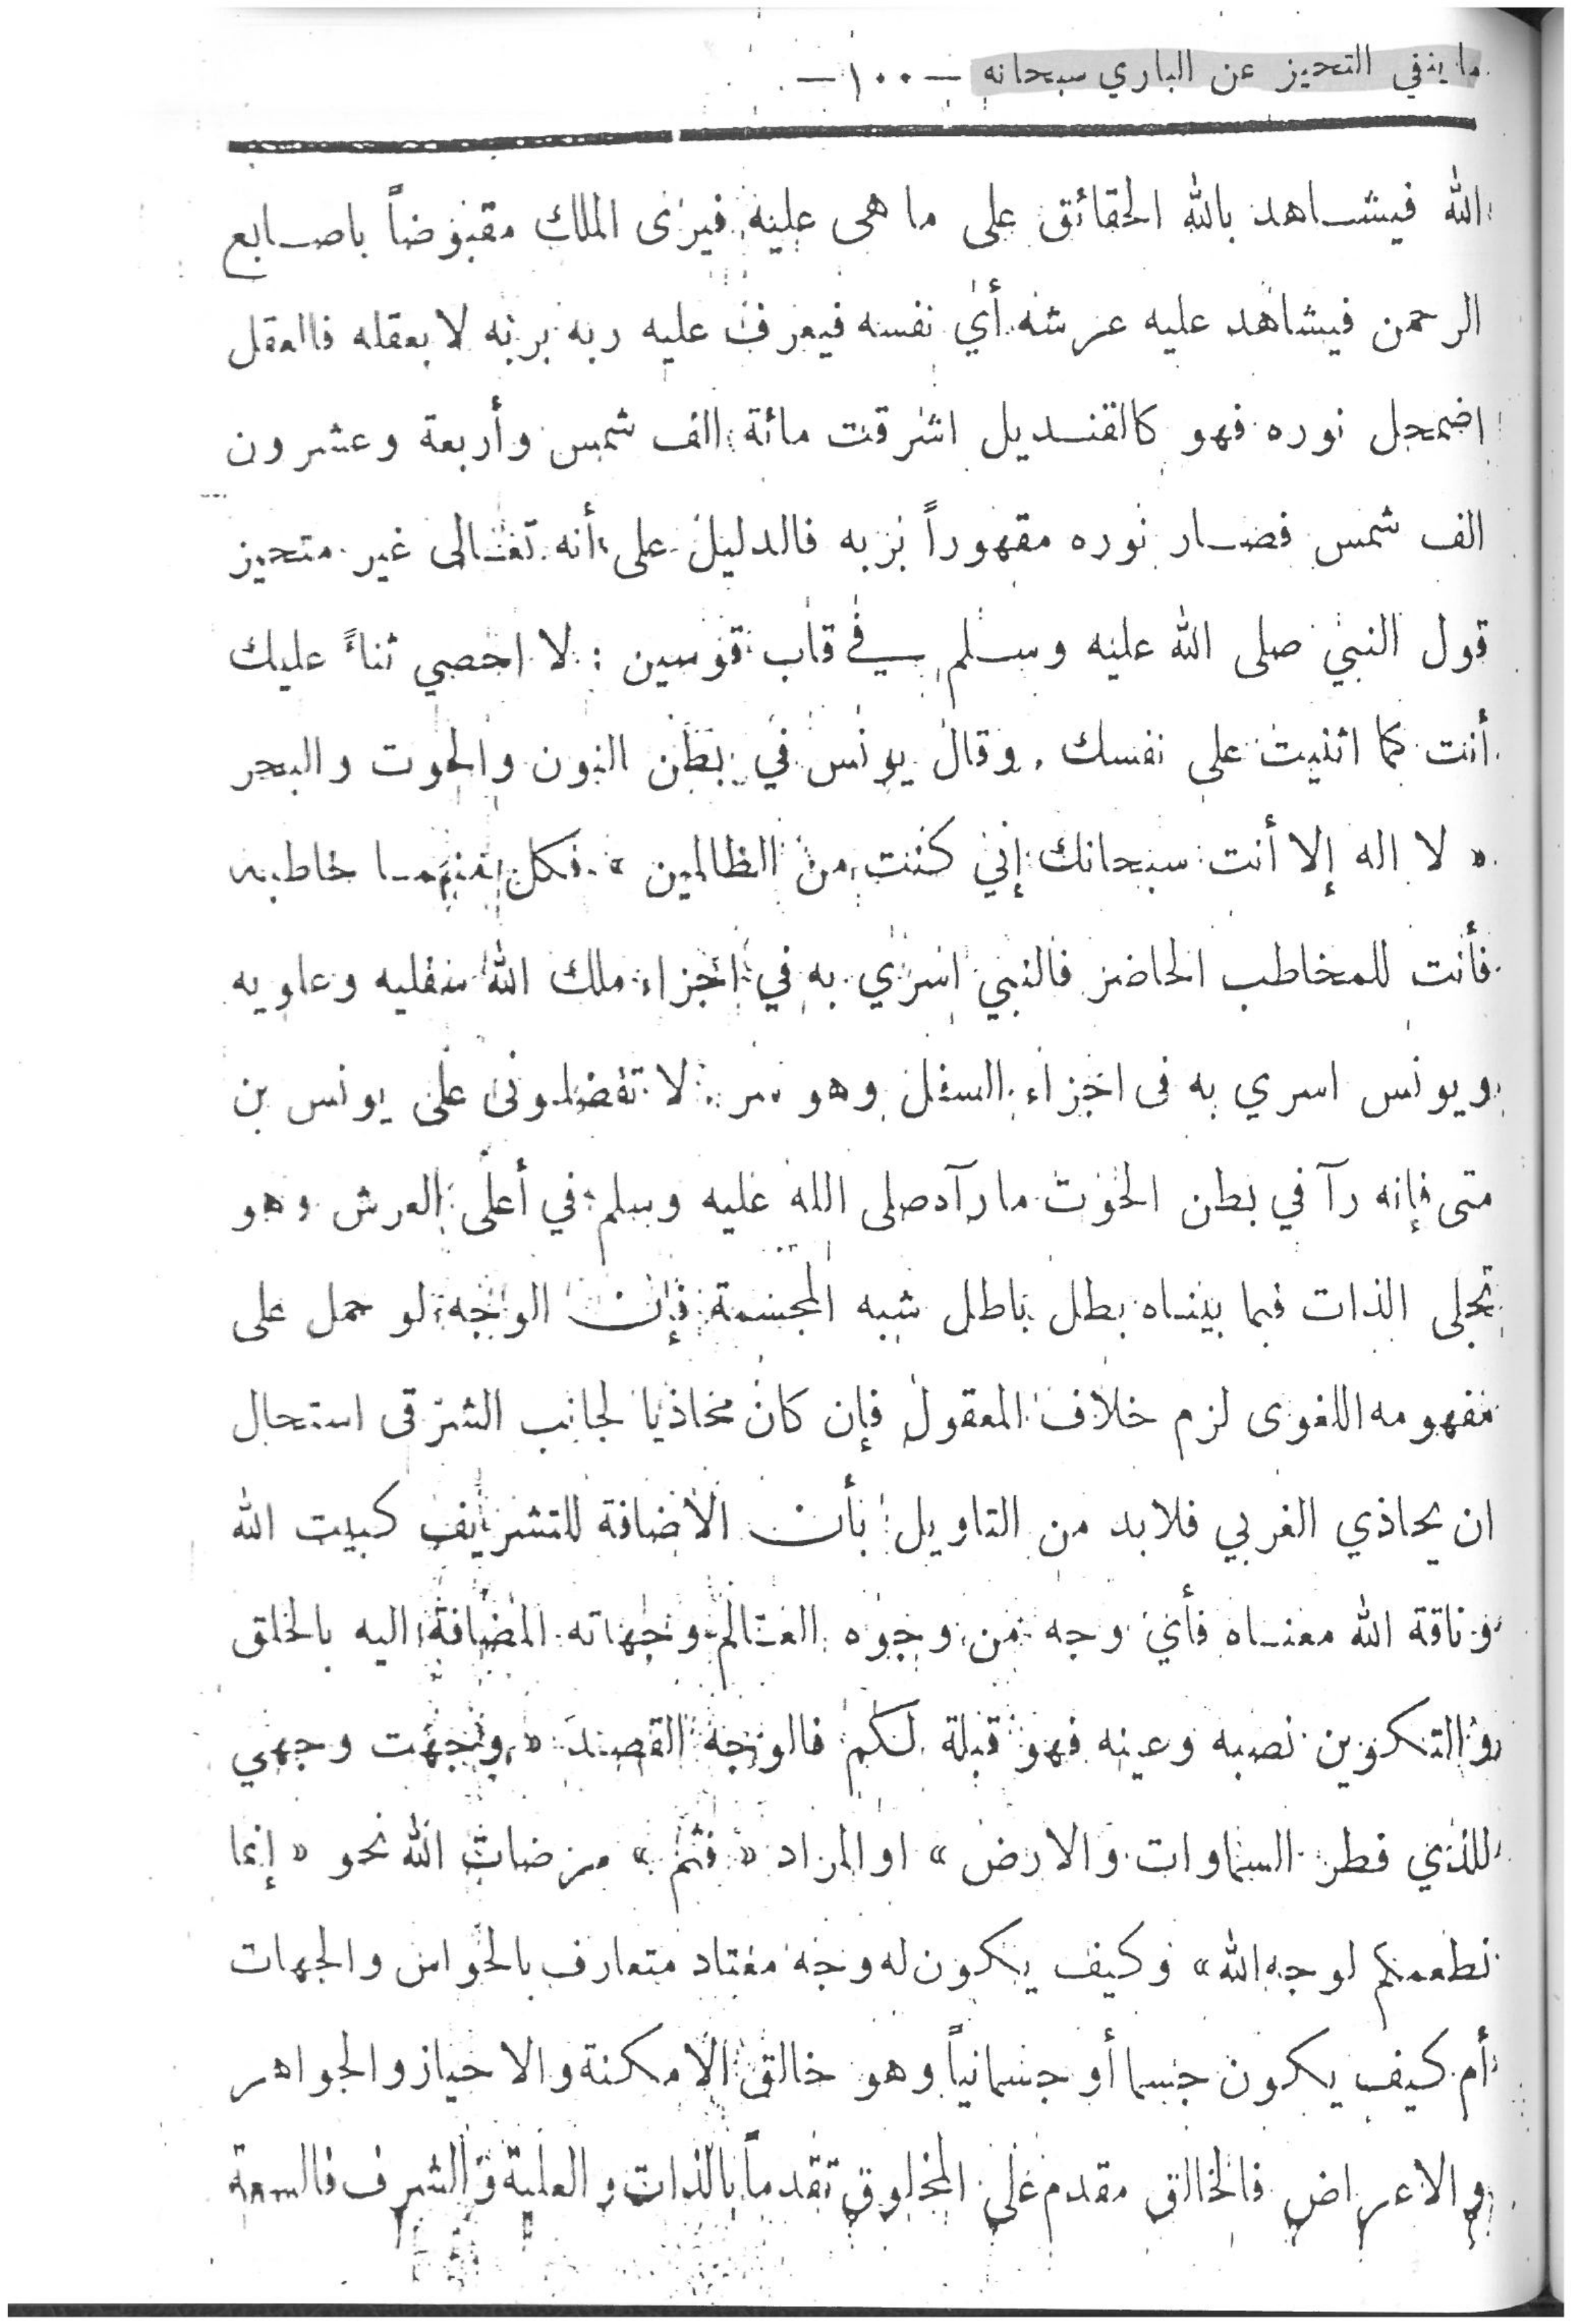 ما ينفي التحيز عن الباري سبحانه — ١٠٠ —
الله فيشاهد بالله الحقائق على ما هى عليه فيرى الملك مقبوضاً باصابع
الرحمن فيشاهد عليه عرشه أي نفسه فيعرف عليه ربه بربه لا بعقله فالعقل
اضمحل نوره فهو كالقنديل اشرقت مائة الف شمس وأربعة وعشرون
الف شمس فصار نوره مقهوراً بربه فالدليل على أنه تعالى غير متحيز
قول النبي صلى الله عليه وسلم في قاب قوسين : لا احصي ثناءً عليك
أنت كما اثنيت على نفسك . وقال يونس في بطن النون والحوت والبحر
« لا اله إلا أنت سبحانك إني كنت من الظالمين » فكل منهما خاطبه
فأنت للمخاطب الحاضر فالنبي اسري به في اجزاء ملك الله سفليه وعلويه
ويونس اسري به فى اجزاء السفل وهو سر : لا تفضلونى على يونس بن
متى فإنه رآ في بطن الحوت ما رآه صلى الله عليه وسلم في أعلى العرش وهو
تجلى الذات فبما بيناه بطل باطل شبه المجسمة فإن الوجه لو حمل على
مفهومه اللغوى لزم خلاف المعقول فإن كان محاذيا لجانب الشرقى استحال
ان يحاذي الغربي فلابد من التاويل بأن الاضافة للتشريف كبيت الله
وناقة الله معناه فأي وجه من وجوه العالم وجهاته المضافة اليه بالخلق
والتكوين نصبه وعينه فهو قبلة لكم فالوجه القصد « وجهت وجهي
للذي فطر السماوات والارض » او المراد « فثم » مرضات الله نحو « إنما
نطعمكم لوجه الله » وكيف يكون له وجه معتاد متعارف بالحواس والجهات
أم كيف يكون جسما أو جسمانياً وهو خالق الامكنة والاحياز والجواهر
والاعراض فالخالق مقدم على المخلوق تقدماً بالذات والعلية والشرف فالسعة